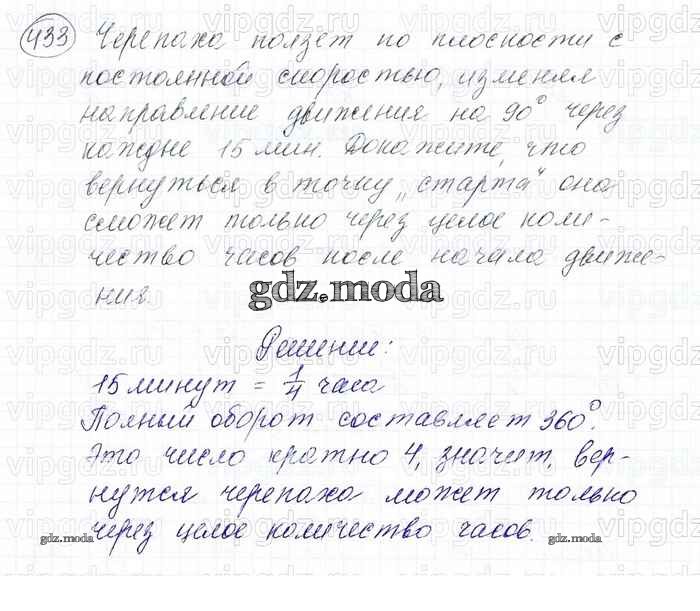 433 Черепаха ползет по плоскости с
постоянной скоростью, изменяя
направление движения на 90° через
каждые 15 мин. Докажите, что
вернуться в точку „старта“ она
сможет только через целое коли-
чество часов после начала движе-
ния.
gdz.moda
Решение:
15 минут = 1/4 часа
Полный оборот составляет 360°.
Это число кратно 4, значит, вер-
нутся черепаха может только
через целое количество часов.
gdz.moda
gdz.moda
vipgdz.ru